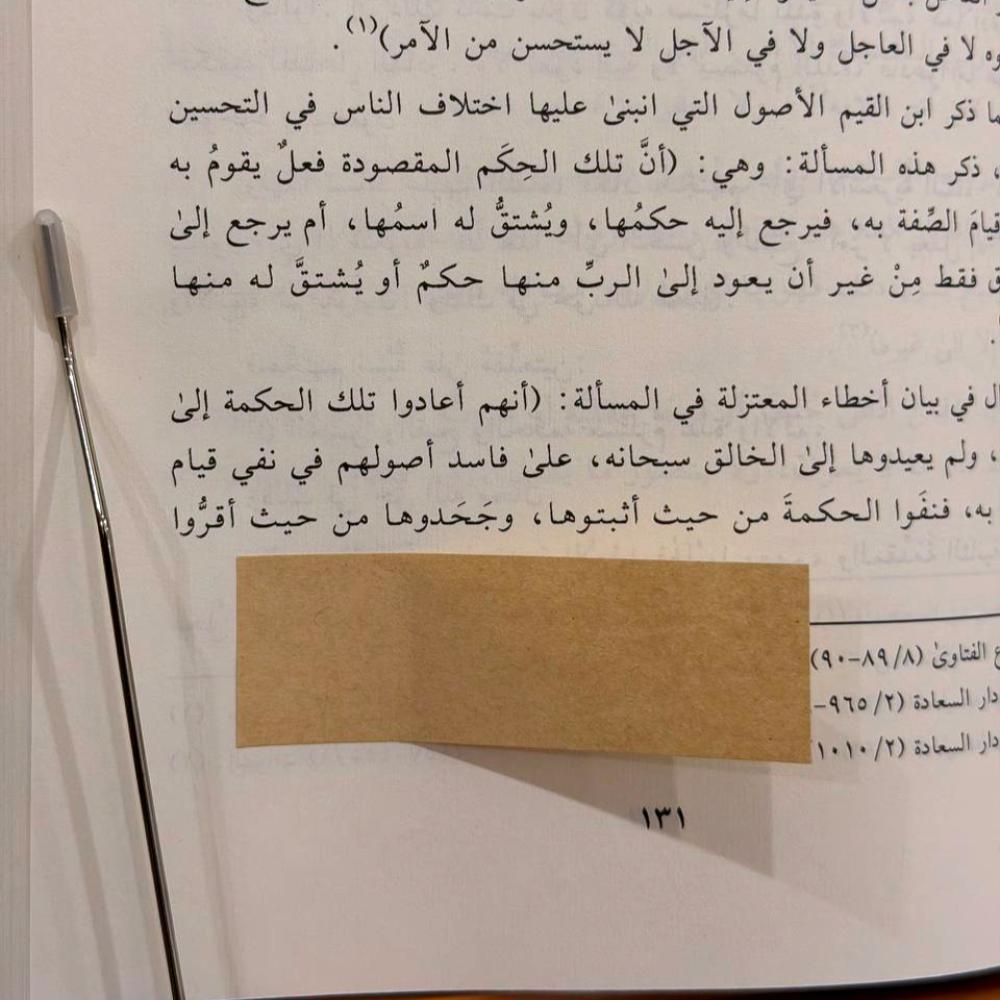 لا في العاجل ولا في الآجل لا يستحسن من الآمر)(١).
ذكر ابن القيم الأصول التي انبنىٰ عليها اختلاف الناس في التحسين
، ذكر هذه المسألة: وهي: (أنَّ تلك الحِكَم المقصودة فعلٌ يقومُ به
قيامَ الصِّفة به، فيرجع إليه حكمُها، ويُشتقُّ له اسمُها، أم يرجع إلىٰ
فقط مِنْ غير أن يعود إلىٰ الربِّ منها حكمٌ أو يُشتقَّ له منها
في بيان أخطاء المعتزلة في المسألة: (أنهم أعادوا تلك الحكمة إلىٰ
، ولم يعيدوها إلىٰ الخالق سبحانه، علىٰ فاسد أصولهم في نفي قيام
به، فنفَوا الحكمةَ من حيث أثبتوها، وجَحَدوها من حيث أقرُّوا
الفتاوىٰ (٨/ ٨٩-٩٠)
دار السعادة (٢/ ٩٦٥-
دار السعادة (٢/ ١٠١٠
١٣١